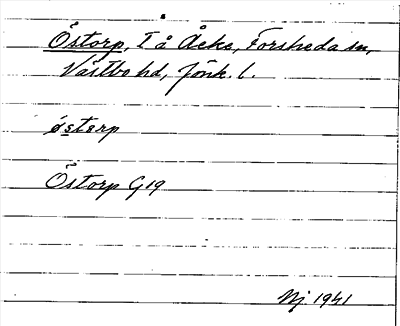 Östorp, T å Åcke, Forsheda sn,
Västbo hd, Jönk. l.
östorp
Östorp G19
Nj 1941